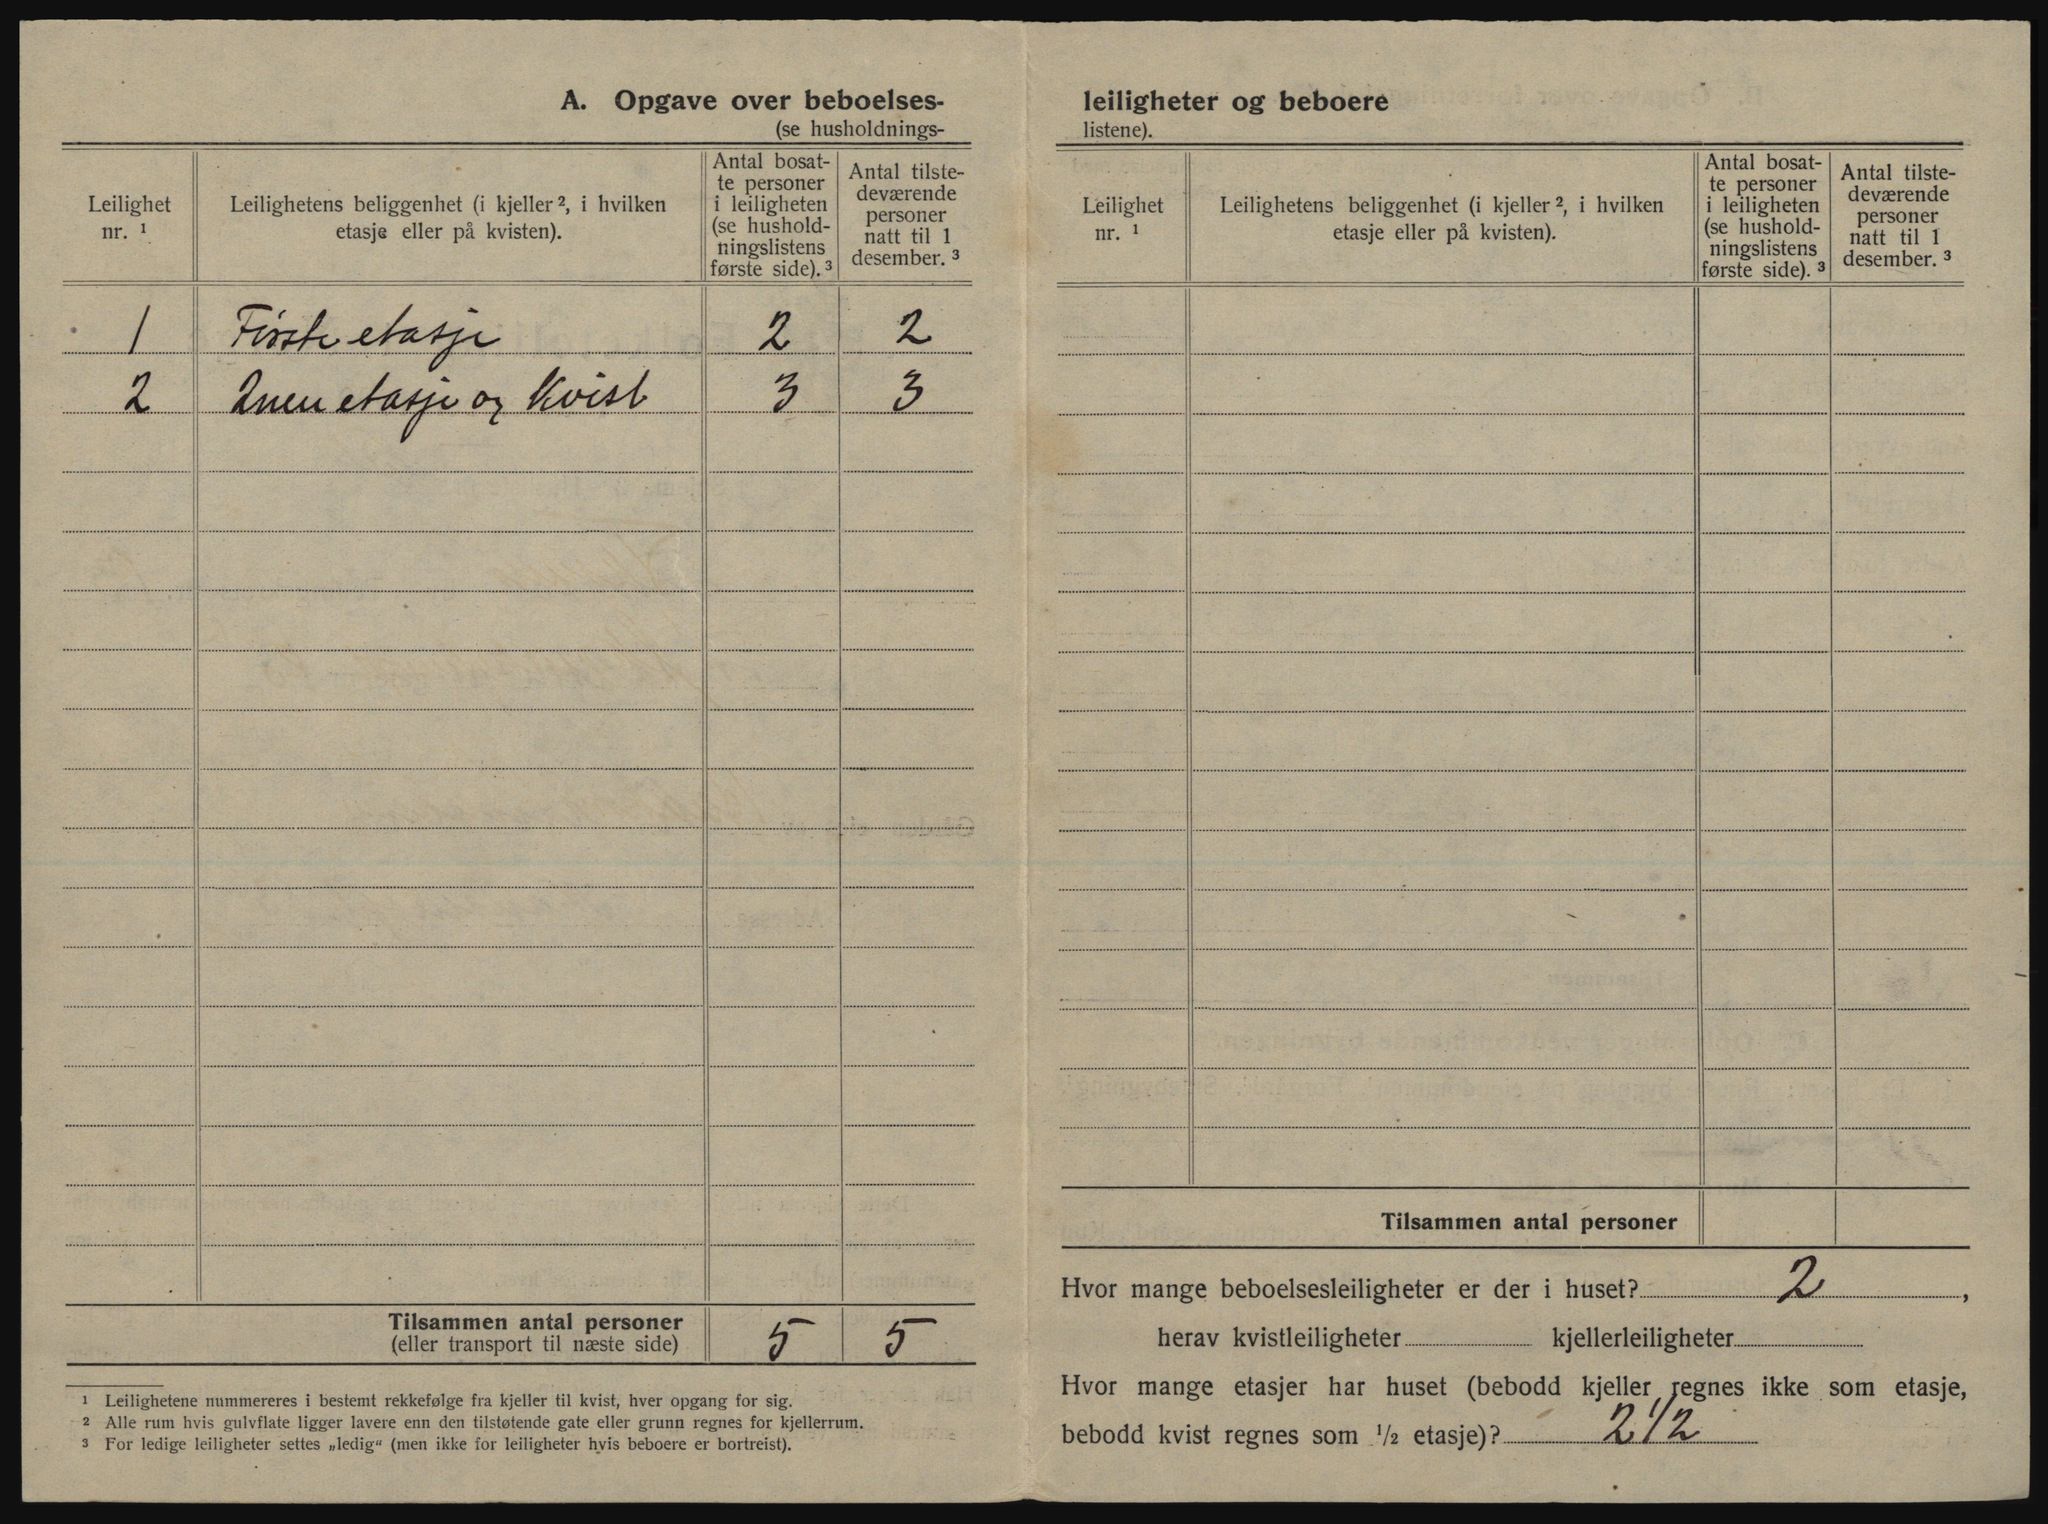 A. Opgave over beboelses-
(se husholdnings-
Leilighet
nr. ¹
Leilighetens beliggenhet (i kjeller ², i hvilken
etasje eller på kvisten).
Antal bosat-
te personer
i leiligheten
(se hushold-
ningslistens
første side). ³
Antal tilste-
deværende
personer
natt til 1
desember. ³
1 Første etasje 2 2
2 2nen etasje og Kvist 3 3
Tilsammen antal personer 5 5
(eller transport til næste side)
¹ Leilighetene nummereres i bestemt rekkefølge fra kjeller til kvist, hver opgang for sig.
² Alle rum hvis gulvflate ligger lavere enn den tilstøtende gate eller grunn regnes for kjellerrum.
³ For ledige leiligheter settes „ledig“ (men ikke for leiligheter hvis beboere er bortreist).
leiligheter og beboere
listene).
Leilighet
nr. ¹
Leilighetens beliggenhet (i kjeller ², i hvilken
etasje eller på kvisten).
Antal bosat-
te personer
i leiligheten
(se hushold-
ningslistens
første side). ³
Antal tilste-
deværende
personer
natt til 1
desember. ³
Tilsammen antal personer
Hvor mange beboelsesleiligheter er der i huset? 2 ,
herav kvistleiligheter kjellerleiligheter
Hvor mange etasjer har huset (bebodd kjeller regnes ikke som etasje,
bebodd kvist regnes som ½ etasje)? 2 1/2